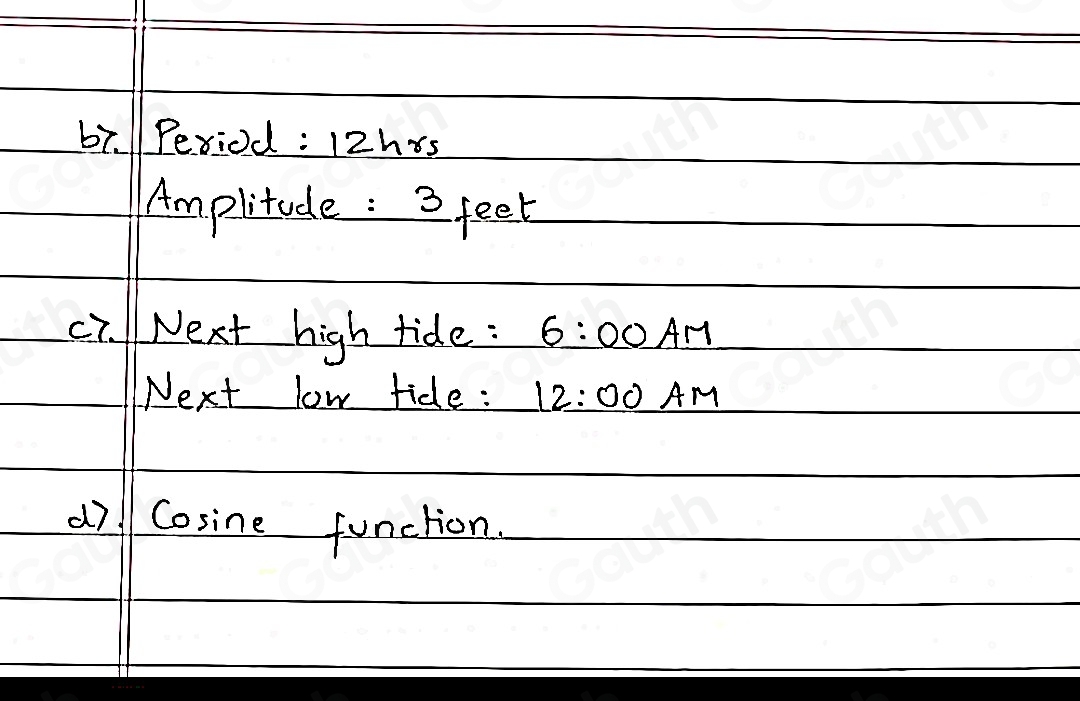 b). Period : 12hrs
Amplitude : 3 feet
c). Next high tide : 6:00 AM
Next low tide : 12:00 AM
d). Cosine function.